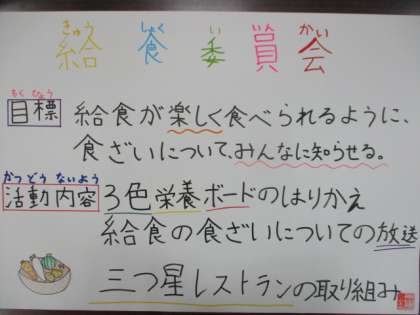 きゅう しょく い いん かい
給食委員会
もくひょう
目標 給食が楽しく食べられるように、
食ざいについて、みんなに知らせる。
かつどうないよう
活動内容 3色栄養ボードのはりかえ
給食の食ざいについての放送
三つ星レストランの取り組み